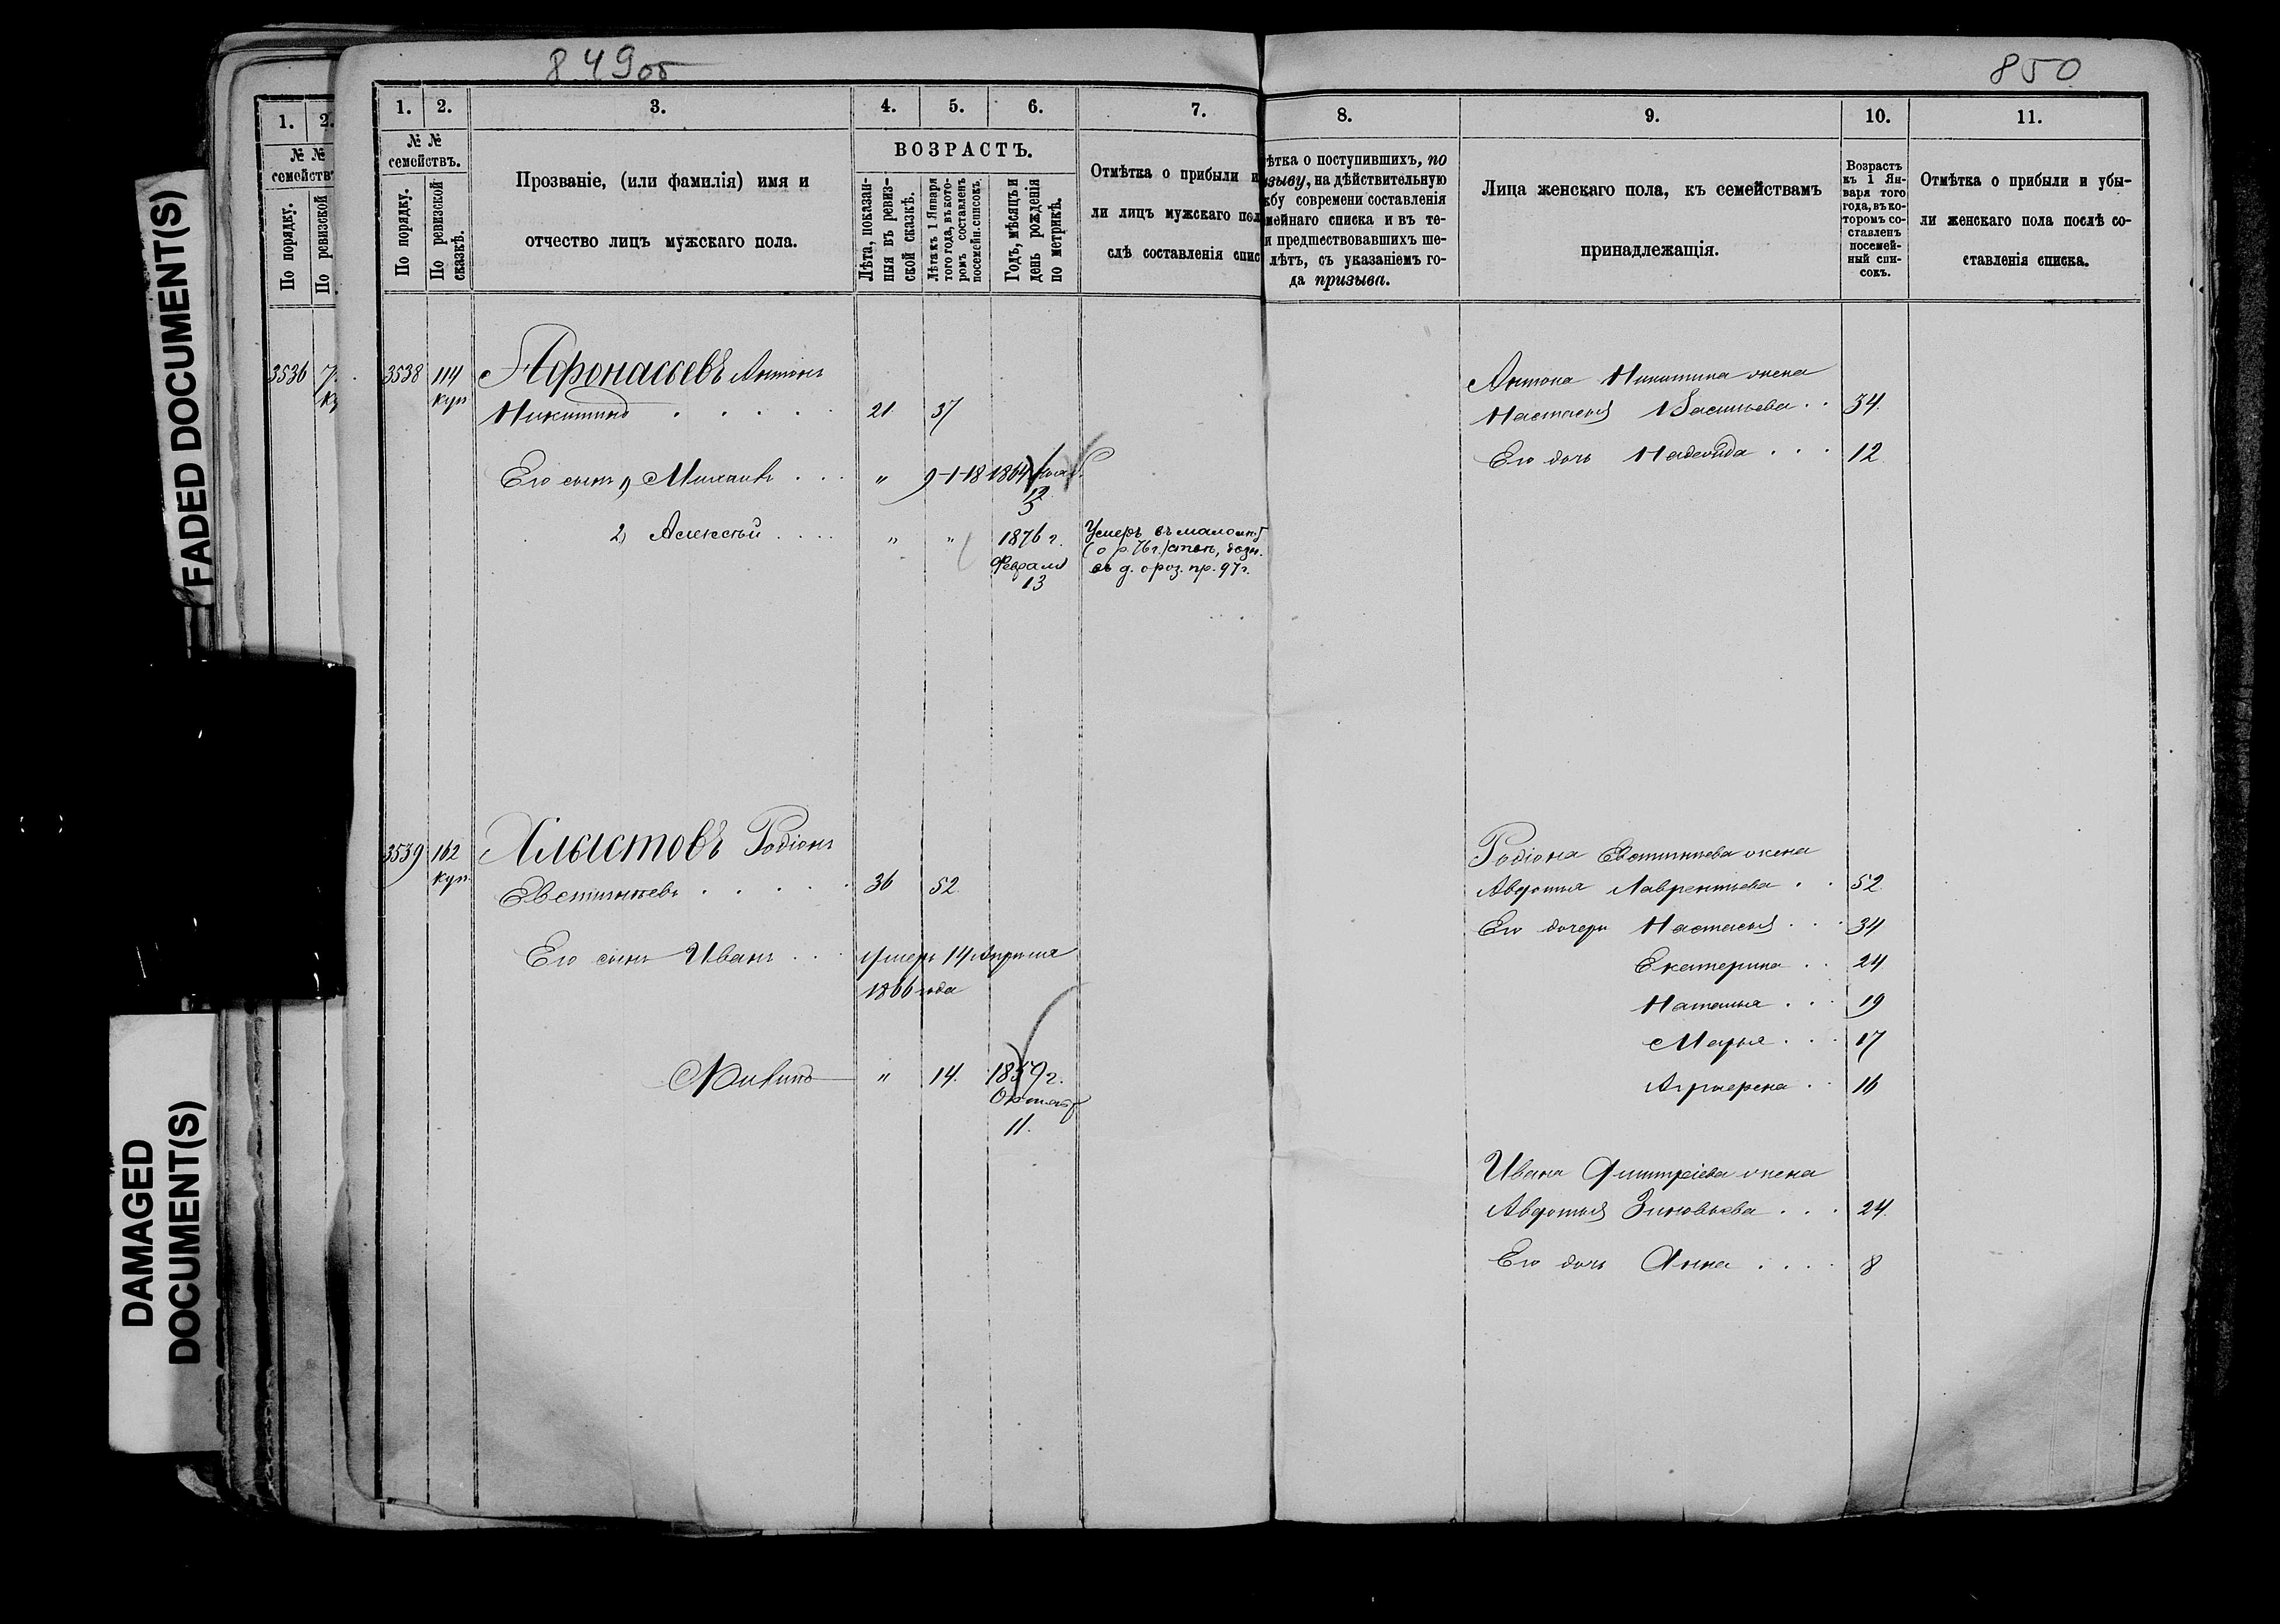 849об
850
FADED DOCUMENT(S)
DAMAGED
DOCUMENT(S)
1. 2.
№ №
семействъ
По порядку.
По ревизской
3536
1. 2. 3. 4. 5. 6. 7. 8. 9. 10. 11.
№ №
семействъ.
По порядку.
По ревизской
сказкѣ.
Прозваніе, (или фамилія) имя и
отчество лицъ мужскаго пола.
ВОЗРАСТЪ.
Лѣта, показан-
ныя въ ревиз-
ской сказкѣ.
Лѣта къ 1 Января
того года, въ кото-
ромъ составленъ
посемейн. списокъ.
Годъ, мѣсяцъ и
день рожденія
по метрикѣ.
Отмѣтка о прибыли и
ли лицъ мужскаго пол
слѣ составленія спис
ѣтка о поступившихъ, по
изыву, на дѣйствительную
жбу современи составленія
мейнаго списка и въ те-
и предшествовавшихъ ше-
лѣтъ, съ указаніемъ го-
да призыва.
Лица женскаго пола, къ семействамъ
принадлежащія.
Возрастъ
къ 1 Ян-
варя того
года, въ ко-
торомъ со-
ставленъ
посемей-
ный спи-
сокъ.
Отмѣтка о прибыли и убы-
ли женскаго пола послѣ со-
ставленія списка.
3538 114 Афонасьевъ Антонъ
куп Никитинъ 21 37
Его сынъ 1) Михаилъ " 9+18 1864
12
2) Алексѣй " " 1876 г.
Февраля
13
Умеръ въ малолѣт
въ д. о роз. пр. 97 г.
Антона Никитина жена
Настасья Васильева 34.
Его дочь Надежда 12
3539 162 Хлыстовъ Родіонъ
куп. Евстигнѣевъ 36 52
Его сынъ Иванъ умеръ 14 Апрѣля
1866 года
Филипъ " 14. 1859 г.
Октября
11.
Родіона Евстигнѣева жена
Авдотья Лаврентьева 52
Его дочери Настасья 34
Екатерина 24
Наталья 19
Марья 17
Агрпена 16
Ивана Дмитріева жена
Авдотья Зиновьева 24.
Его дочь Анна 8